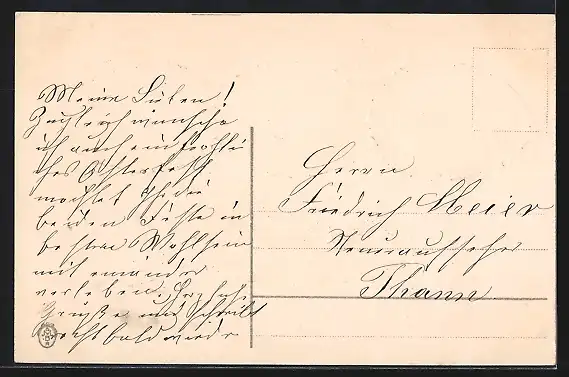 Meine Lieben!
Zugleich wünsche
ich auch ein fröhli
ches Osterfest
möchtet Ihr die
beiden Feste in
bestem Wohlsein
mit einander
verleben. Herzliche
Grüße und schreibt
recht bald wieder
Herrn
Friedrich Meier
Steueraufseher
Thann